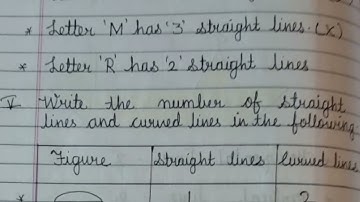 * Letter 'M' has '3' straight lines. (X)
* Letter 'R' has '2' straight lines
V Write the number of straight
lines and curved lines in the following
Figure straight lines Curved lines
* 1 2